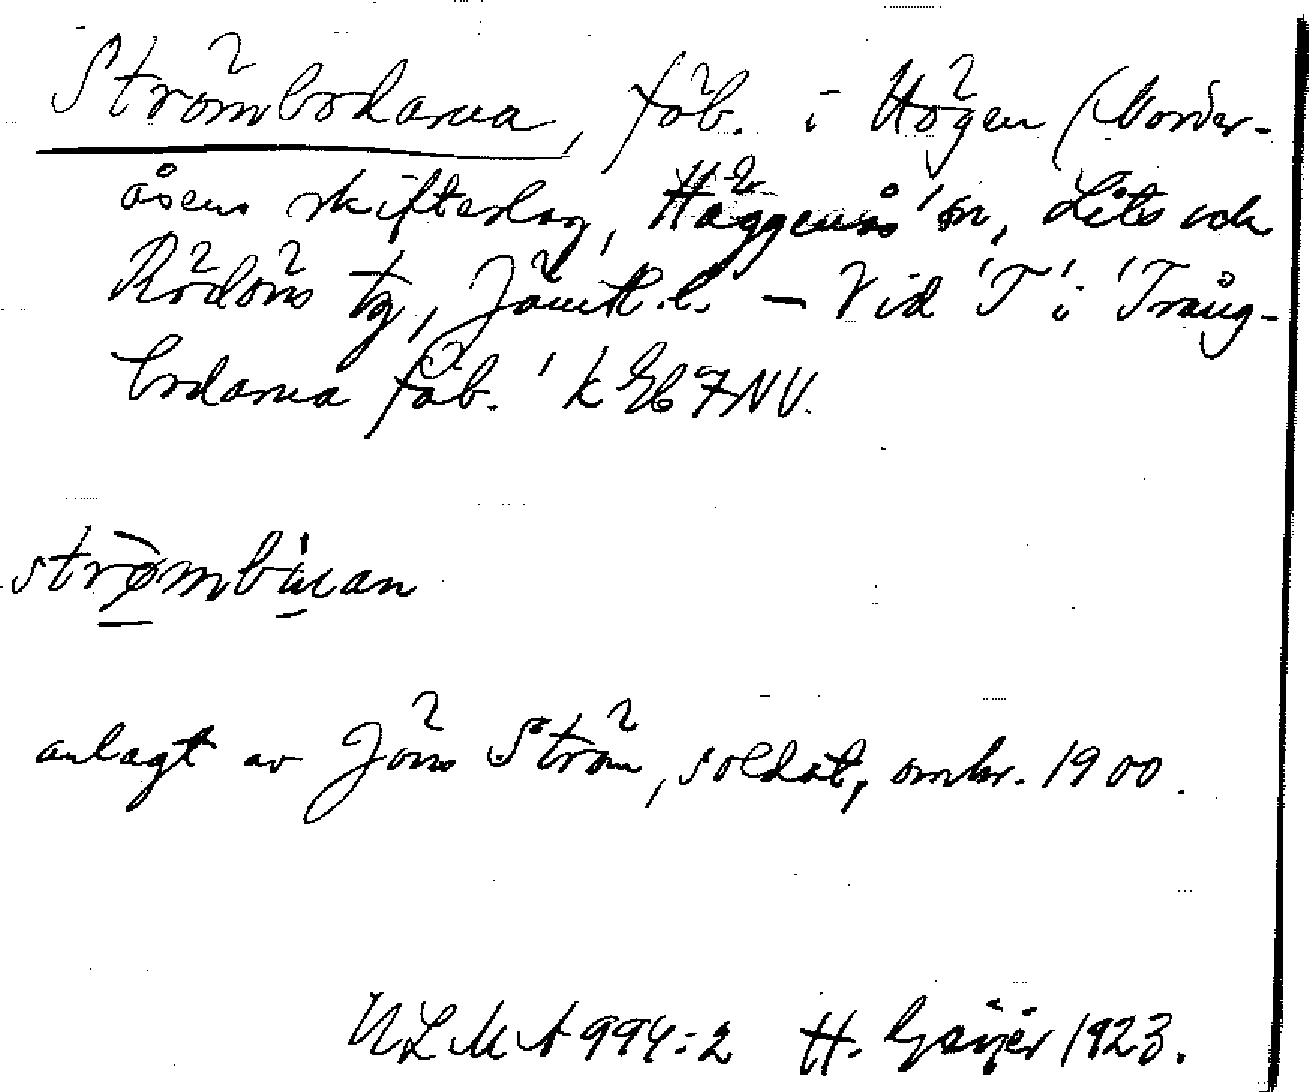 Strömbodarna, fäb. i Högen (Norder-
åsens skifteslag, Häggenås sn, Lits och
Rödöns tg, Jämtl. l. – Vid 'T' i 'Trång-
bodarna fäb.' k Eb 7 NV.
strømbúan
anlagt av Jöns Ström, soldat, omkr. 1900.
ULMA 994:2 H. Geijer 1923.